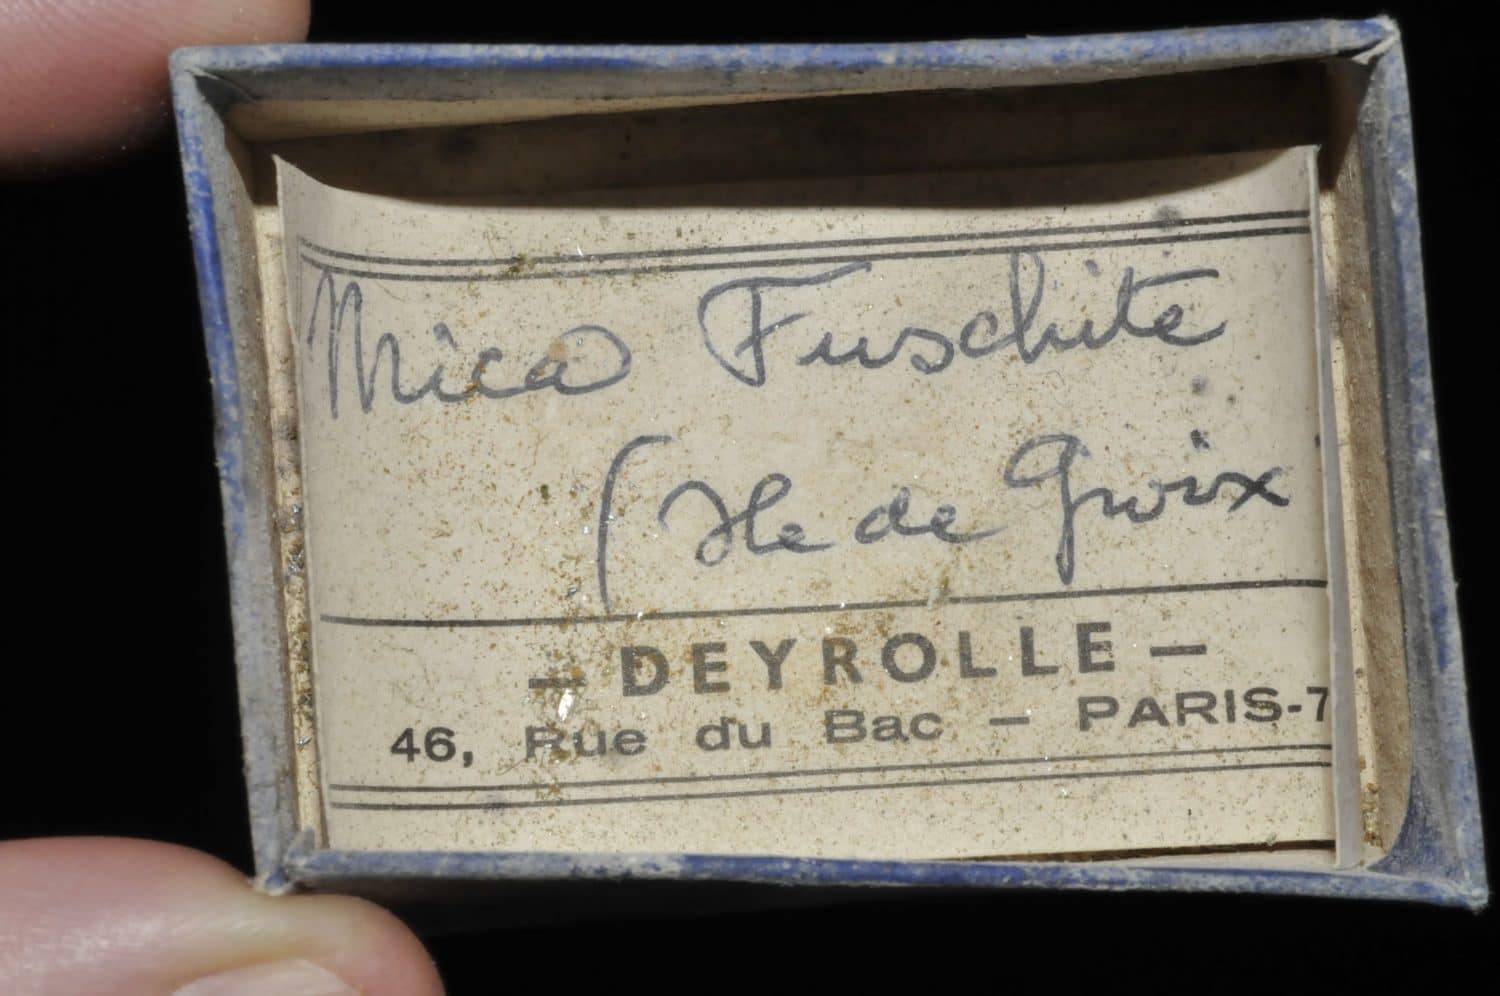 Mica Fuschite
(Ile de Groix
— DEYROLLE —
46, Rue du Bac — PARIS-7